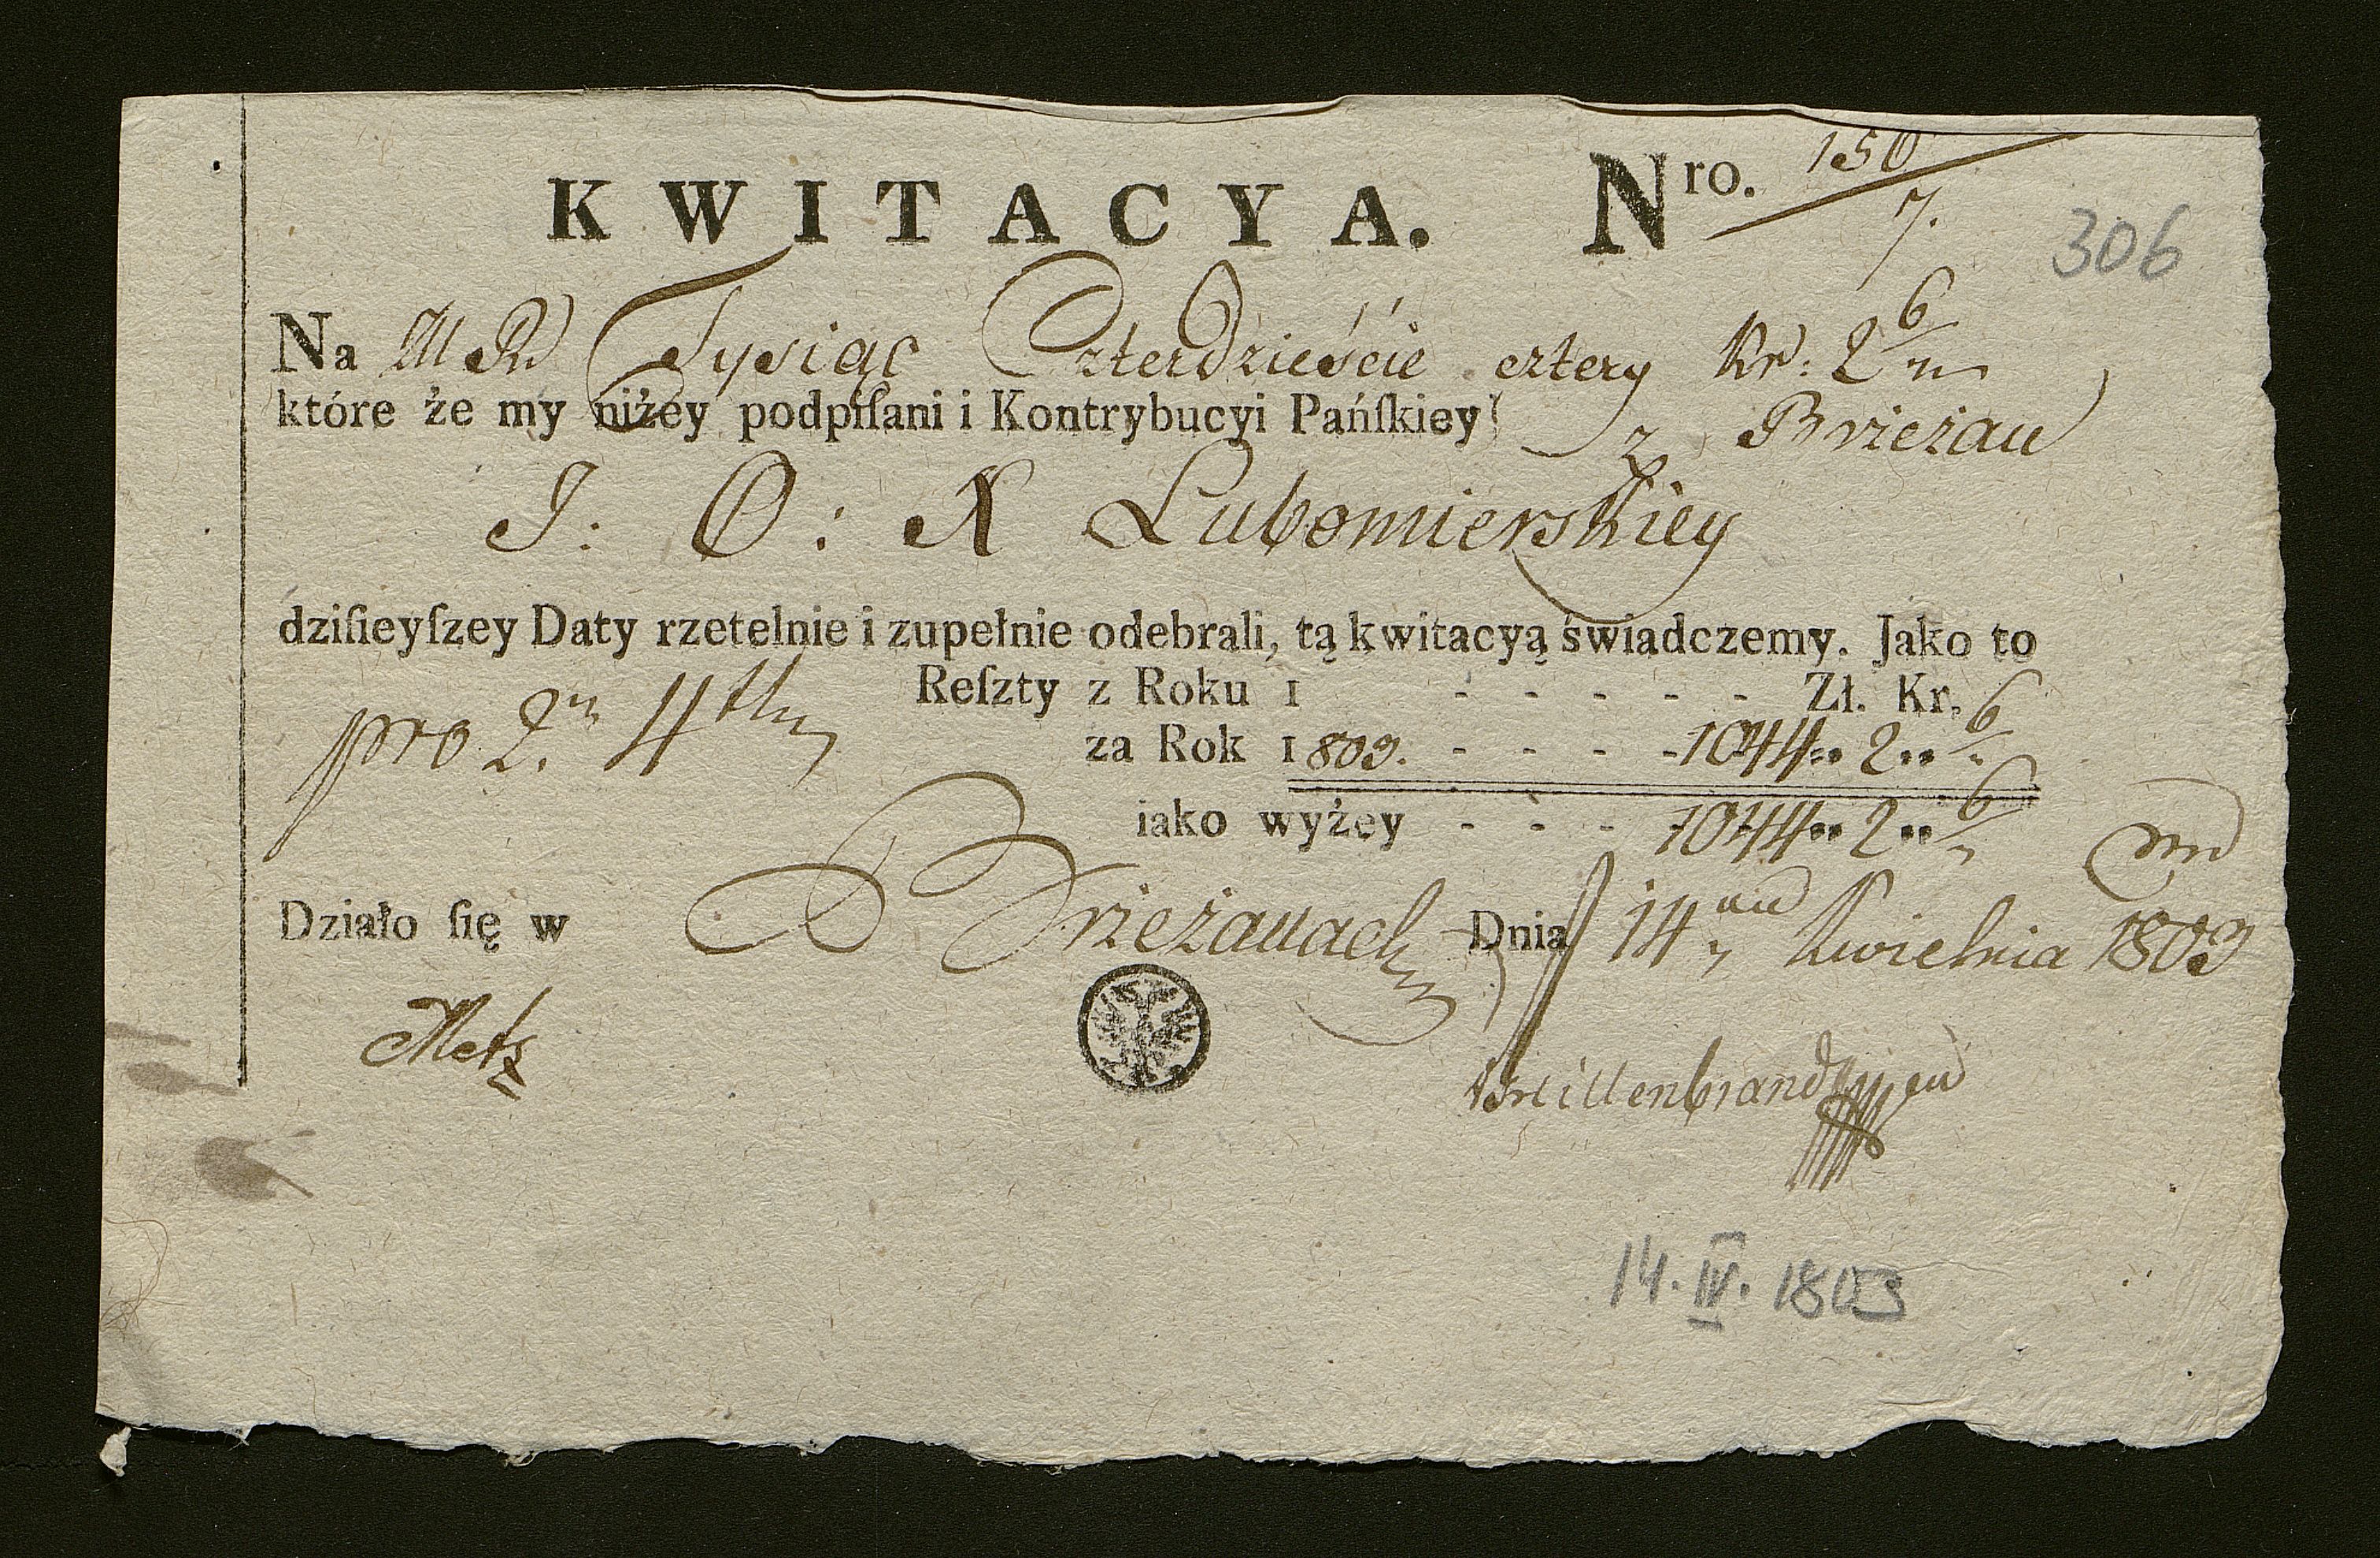 KWITACYA. Nro. 150/7.
306
Na Tysiąc Czterdzieście cztery Kr: 2 6/
które że my niżey podpiſani i Kontrybucyi Pańſkiey z Brzeżan
J: O: X Lubomierskiey
dziſieyſzey Daty rzetelnie i zupełnie odebrali, tą kwitacyą świadczemy. Jako to
Reſzty z Roku 1 - - - - - Zł. Kr.
pro 2. 4
za Rok 1803. - - - - 1044 2 6/
iako wyżey - - - 1044 2 6/
Działo ſię w Brzeżanach Dnia 14 Kwietnia 1803
Metz
Hillenbrand
14. IV. 1803